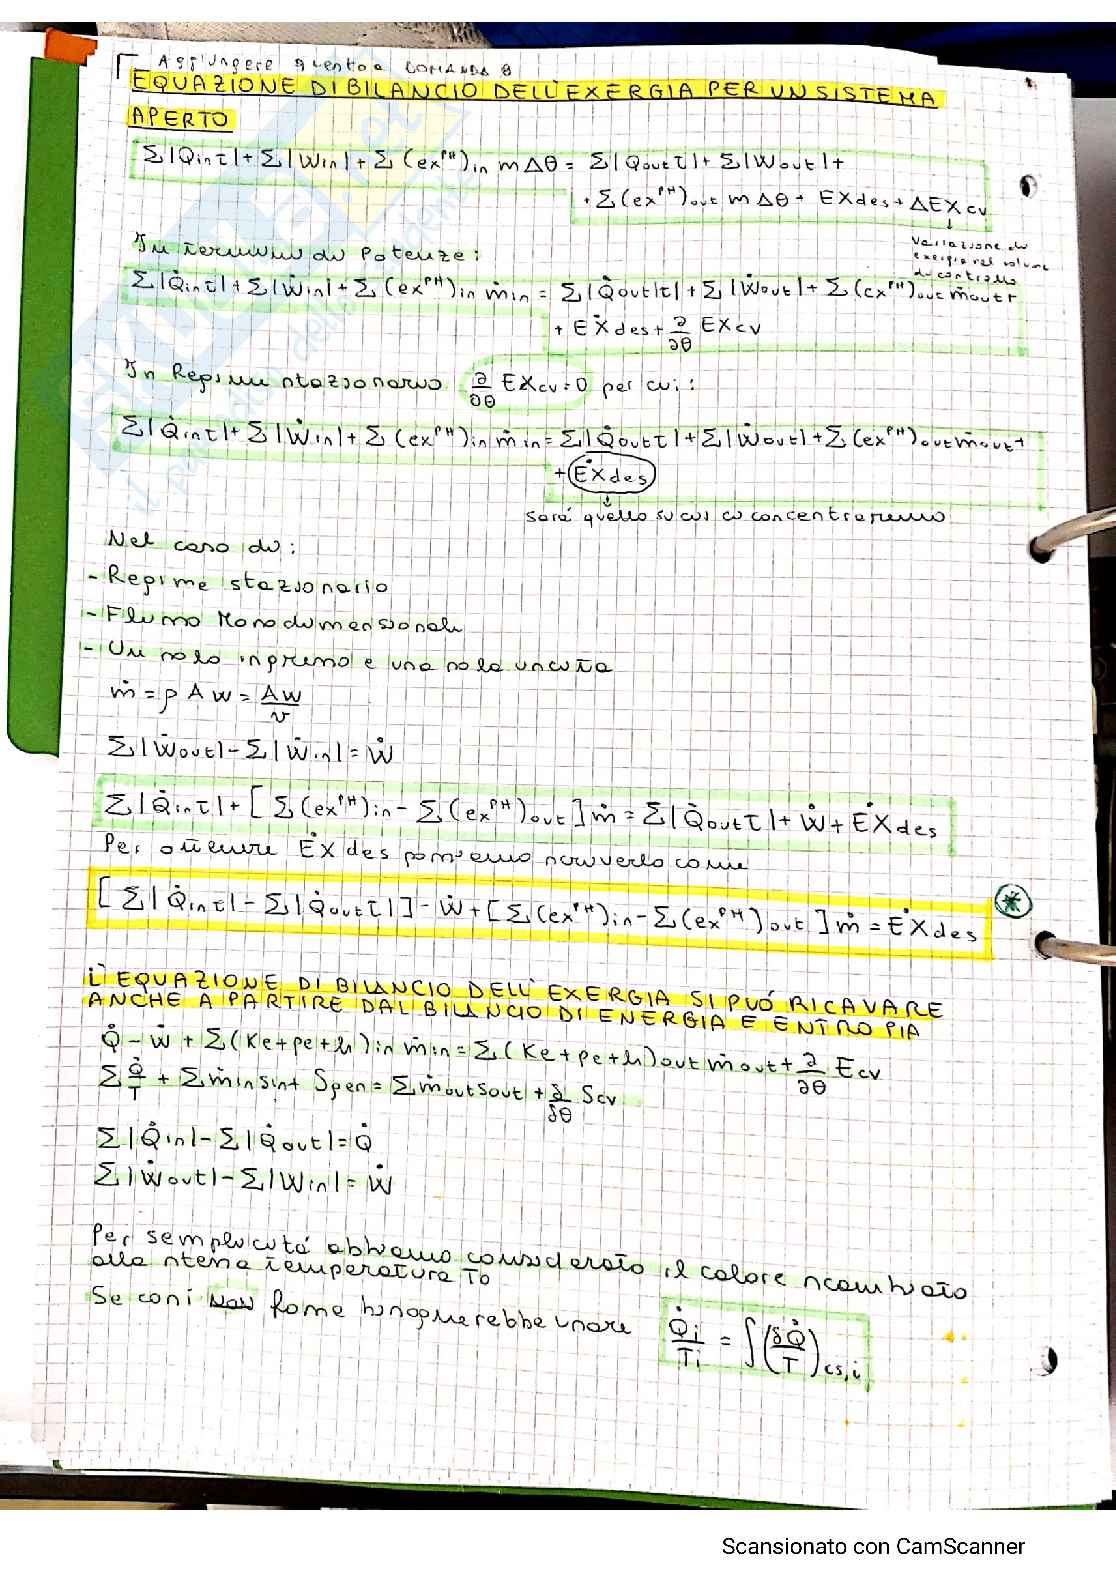 Aggiungere questo a DOMANDA 8
EQUAZIONE DI BILANCIO DELL'EXERGIA PER UN SISTEMA
APERTO
Σ|Qin τ| + Σ|Win| + Σ(ex^PH)in m Δθ = Σ|Qout τ| + Σ|Wout| +
+ Σ(ex^PH)out m Δθ + EXdes + ΔEXcv
↓
Variazione di
exergia nel volume
di controllo
In termini di Potenze:
Σ|Q̇in τ| + Σ|Ẇin| + Σ(ex^PH)in ṁin = Σ|Q̇out|τ| + Σ|Ẇout| + Σ(ex^PH)out ṁout +
+ EẊdes + ∂/∂θ EXcv
In Regime stazionario ∂/∂θ EXcv = 0 per cui:
Σ|Q̇in τ| + Σ|Ẇin| + Σ(ex^PH)in ṁin = Σ|Q̇out τ| + Σ|Ẇout| + Σ(ex^PH)out ṁout +
+ EẊdes
↓
sará quello su cui ci concentreremo
Nel caso di:
- Regime stazionario
- Flusso Monodimensionale
- Un solo ingresso e una sola uscita
ṁ = ρ A w = Aw/v
Σ|Ẇout| - Σ|Ẇin| = Ẇ
Σ|Q̇in τ| + [Σ(ex^PH)in - Σ(ex^PH)out] ṁ = Σ|Q̇out τ| + Ẇ + EẊdes
Per ottenere EẊdes possiamo scriverlo come
[Σ|Q̇in τ| - Σ|Q̇out τ|] - Ẇ + [Σ(ex^PH)in - Σ(ex^PH)out] ṁ = EẊdes *
L'EQUAZIONE DI BILANCIO DELL'EXERGIA SI PUÓ RICAVARE
ANCHE A PARTIRE DAL BILANCIO DI ENERGIA E ENTROPIA
Q̇ - Ẇ + Σ(Ke + pe + h)in ṁin = Σ(Ke + pe + h)out ṁout + ∂/∂θ Ecv
Σ Q̇/T + Σ ṁin sin + Sgen = Σ ṁout sout + ∂/∂θ Scv
Σ|Q̇in| - Σ|Q̇out| = Q̇
Σ|Ẇout| - Σ|Win| = Ẇ
Per semplicitá abbiamo considerato il calore scambiato
alla stessa temperatura To
Se cosi NON fosse bisognerebbe usare Q̇i/Ti = ∫(δQ̇/T)cs,i
Scansionato con CamScanner